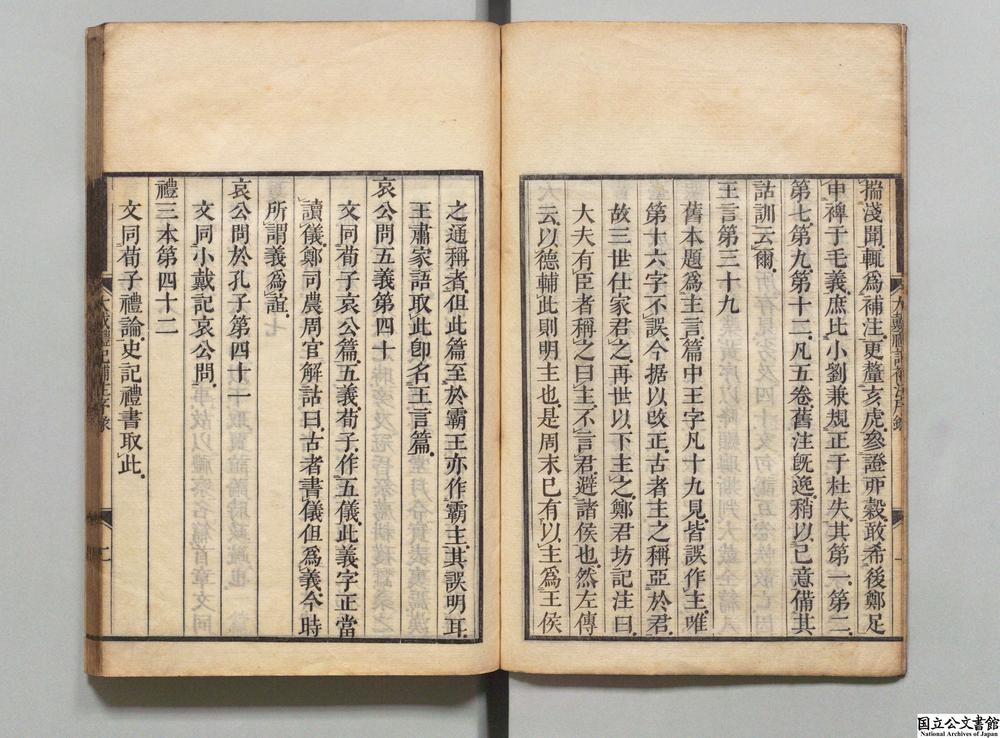 揣淺聞輒爲補注更釐亥虎參證丣穀敢希後鄭足
申裨于毛義庶比小劉兼規正于杜失其第一第二
第七第九第十二凡五卷舊注旣逸稍以己意備其
詁訓云爾
王言第三十九
舊本題爲主言篇中王字凡十九見皆誤作主唯
第十六字不誤今据以改正古者主之稱亞於君
故三世仕家君之再世以下主之鄭君坊記注曰
大夫有臣者稱之曰主不言君避諸侯也然左傳
云以德輔此則明主也是周末已有以主爲王侯
之通稱者但此篇至於霸王亦作霸主其誤明耳
王肅家語取此卽名王言篇
哀公問五義第四十
文同荀子哀公篇五義荀子作五儀此義字正當
讀儀鄭司農周官解詁曰古者書儀但爲義今時
所謂義爲誼
哀公問於孔子第四十一
文同小戴記哀公問
禮三本第四十二
文同荀子禮論史記禮書取此
大戴禮記補注序錄
国立公文書館
National Archives of Japan